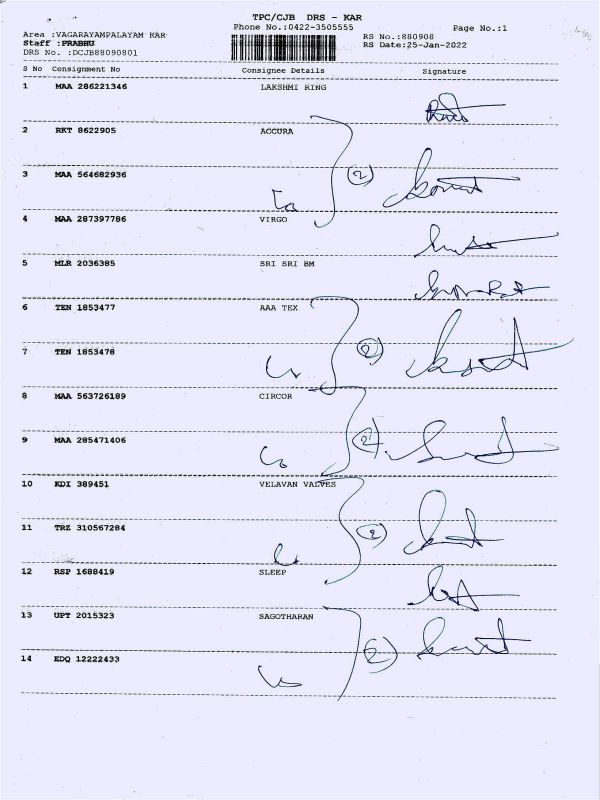 TPC/CJB DRS - KAR
Phone No.:0422-3505555 Page No.:1
Area :VAGARAYAMPALAYAM KAR RS No.:880908
Staff :PRABHU RS Date:25-Jan-2022
DRS No. :DCJB88090801
S No Consignment No Consignee Details Signature
1 MAA 286221346 LAKSHMI RING
2 RKT 8622905 ACCURA
3 MAA 564682936 (2)
4 MAA 287397786 VIRGO
5 MLR 2036385 SRI SRI BM
6 TEN 1853477 AAA TEX
7 TEN 1853478 (2)
8 MAA 563726189 CIRCOR
9 MAA 285471406 (2)
10 KDI 389451 VELAVAN VALVES
11 TRZ 310567284 (2)
12 RSP 1688419 SLEEF
13 UPT 2015323 SAGOTHARAN
14 EDQ 12222433 (2)